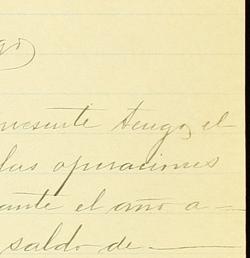 go
presente tengo el
las operaciones
ante el año a-
saldo de